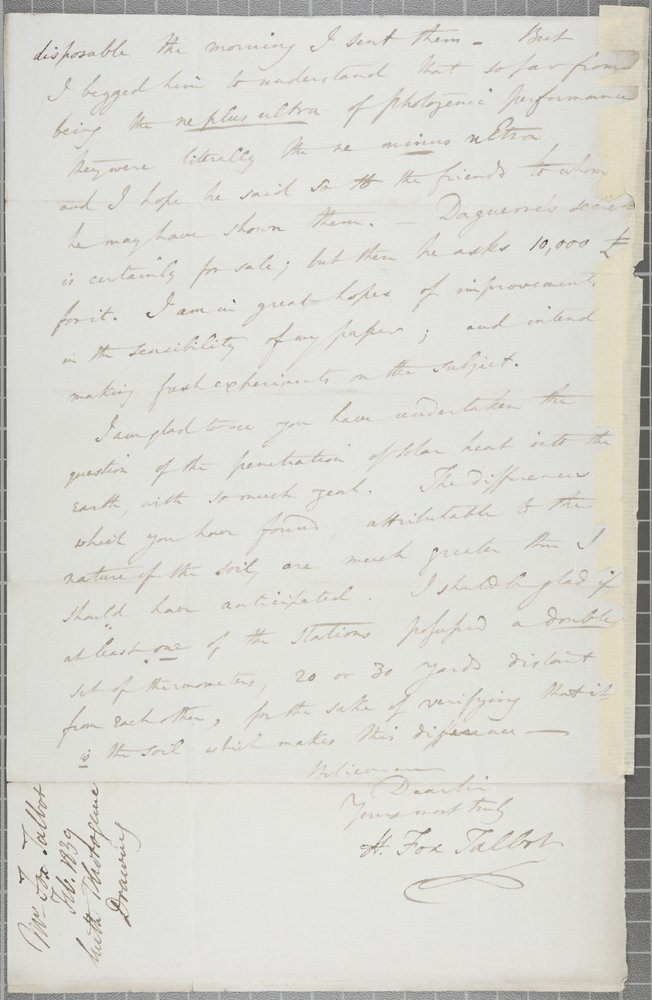 disposable the morning I sent them – But
I begged him to understand that so far from
being the ne plus ultra of photogenic performance
they were literally the ne minus ultra
and I hope he said so to the friends to whom
he may have shown them. – Daguerre's secret
is certainly for sale; but then he asks 10,000 £
for it. I am in great hopes of improvements
in the sensibility of my paper; and intend
making fresh experiments on the subject.
I am glad to see you have undertaken the
question of the penetration of solar heat into the
Earth, with so much zeal. The differences
which you have found, attributable to the
nature of the soil, are much greater than I
should have anticipated. I should be glad if
at least one of the stations possessed a double
set of thermometers, 20 or 30 yards distant
from each other, for the sake of verifying that it
is the soil which makes this difference —
Believe me
Dear Sir
Yours most truly
H. Fox Talbot
Mr Fox Talbot
Feb. 1839
with Photogenic
Drawing